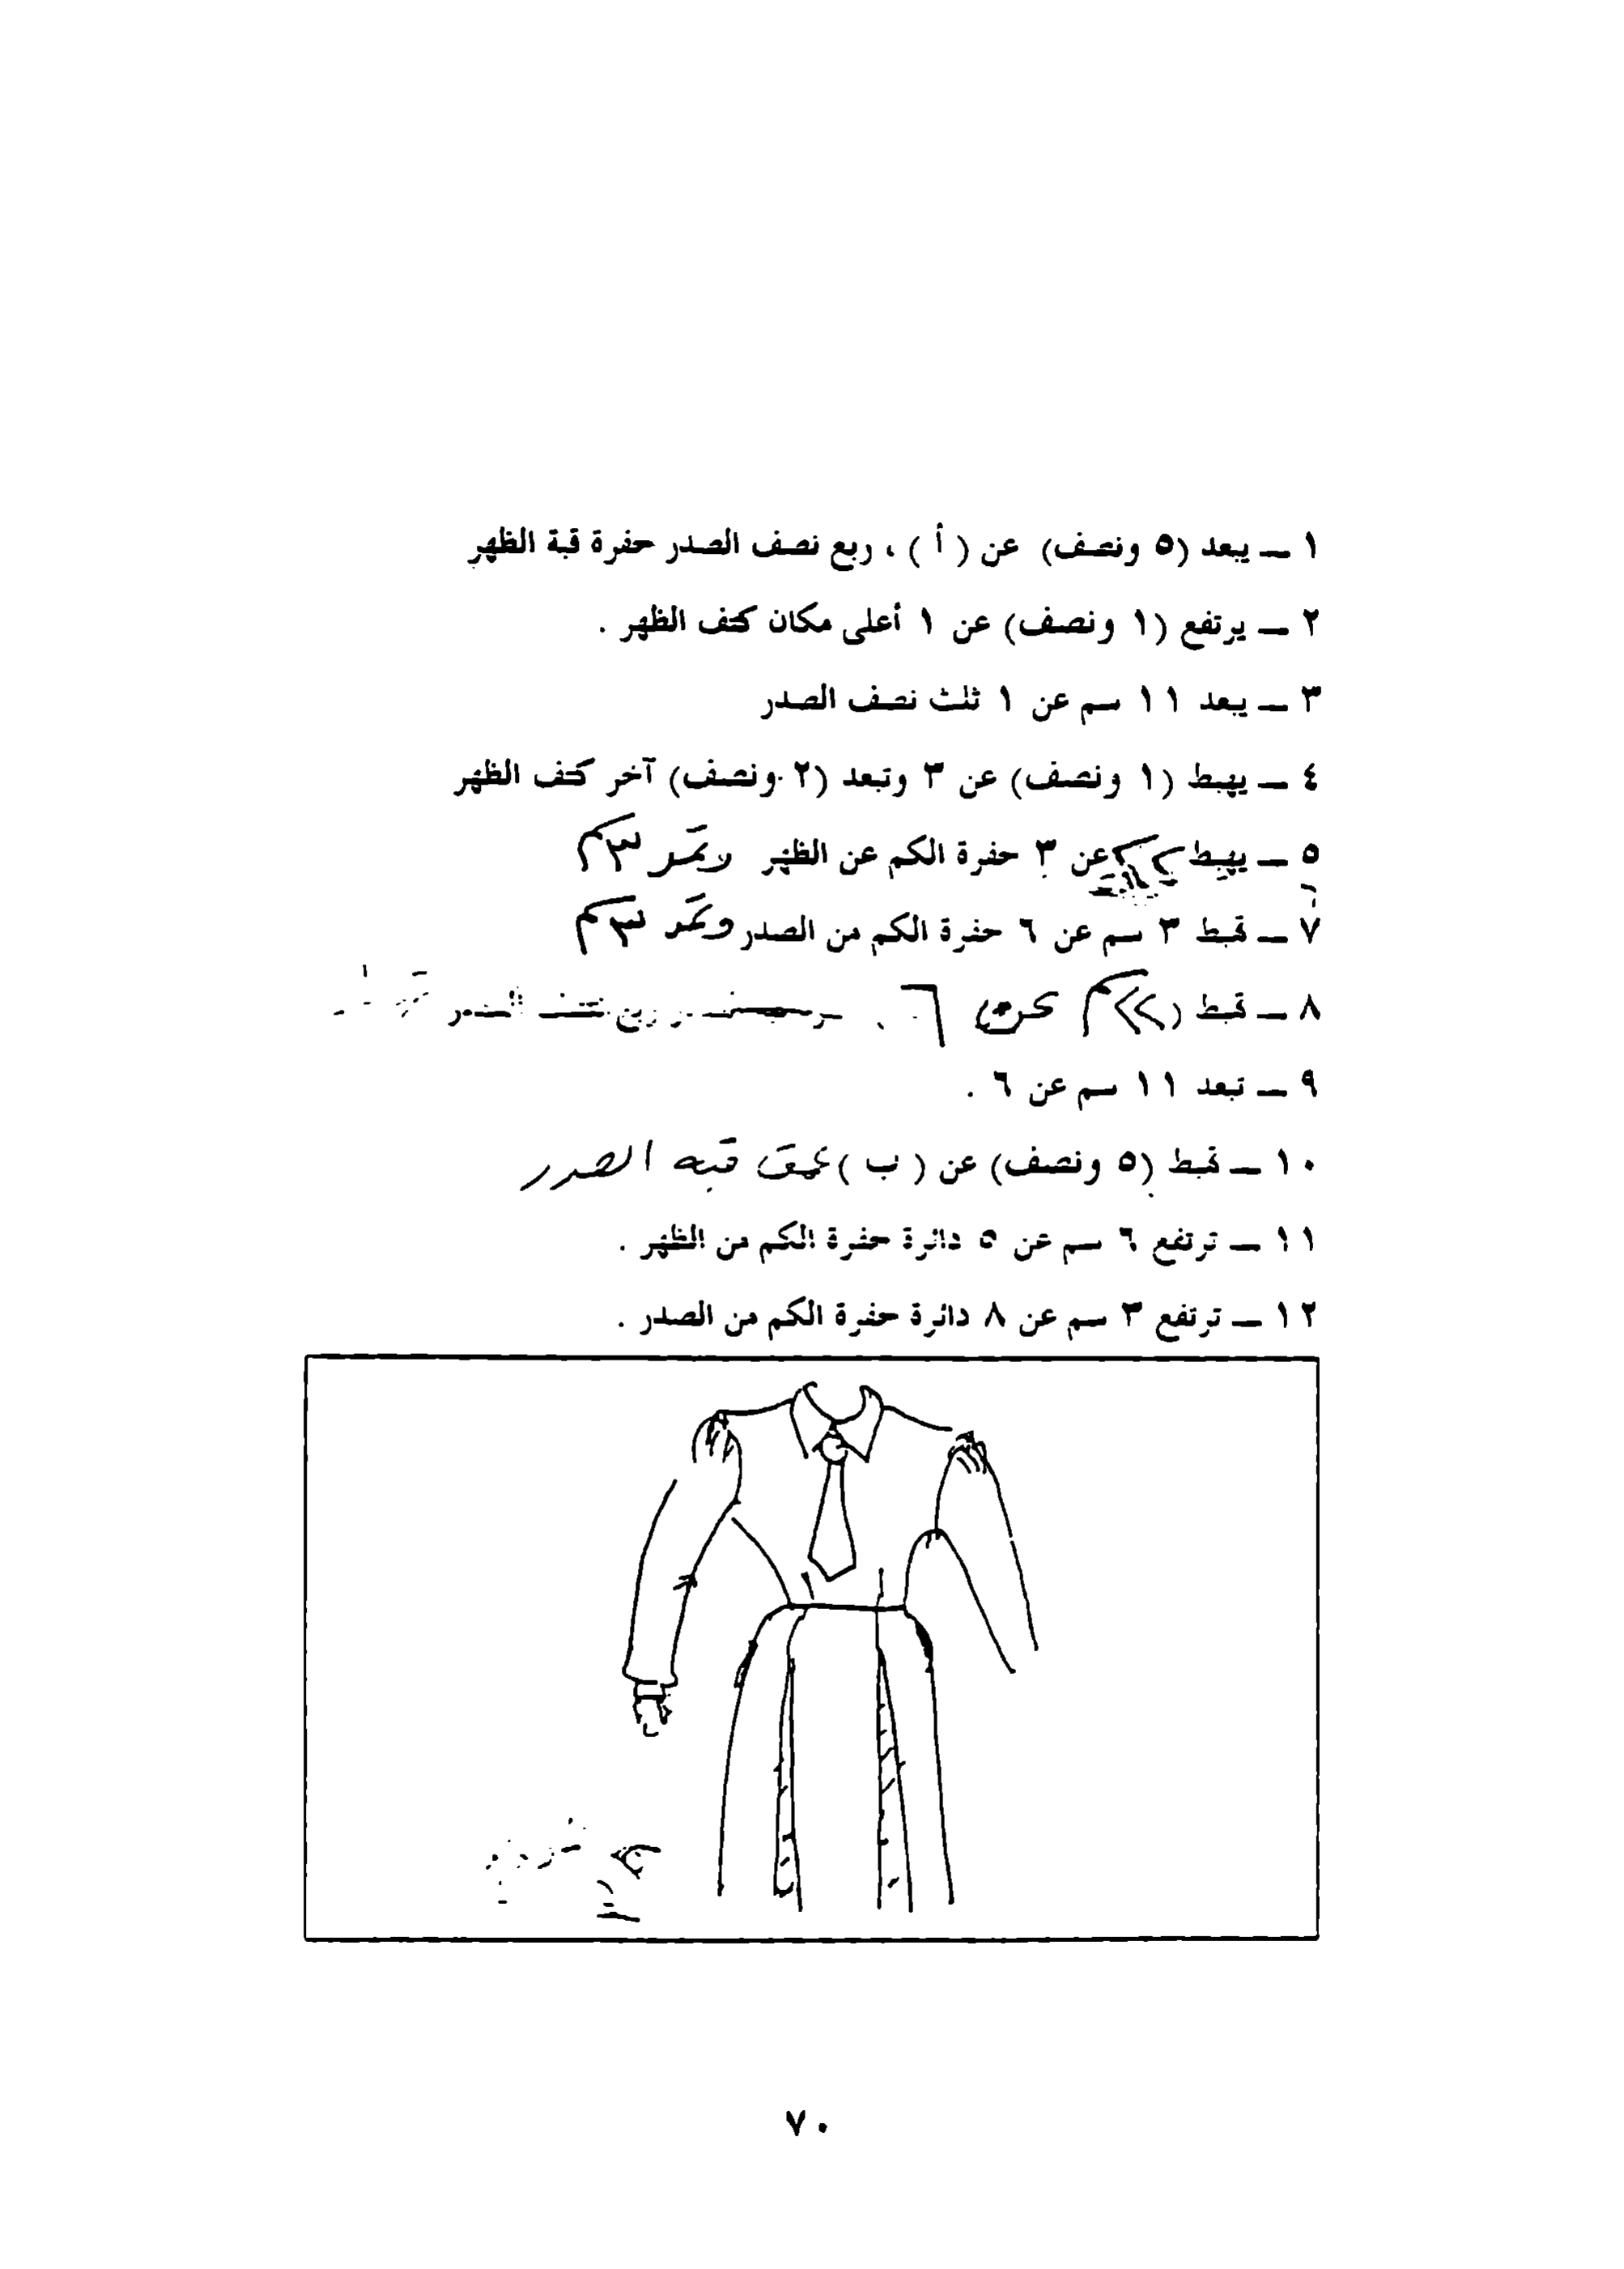 ١ — يبعد (٥ ونصف) عن ( أ ) ، ربع نصف الصدر حفرة قبة الظهر
٢ — يرتفع (١ ونصف) عن ١ أعلى مكان كتف الظهر .
٣ — يبعد ١١ سم عن ١ ثلث نصف الصدر
٤ — يهبط (١ ونصف) عن ٣ وتبعد (٢ ونصف) آخر كتف الظهر
٥ — يهبط عن ٣ حفرة الكم عن الظهر
٧ — تهبط ٣ سم عن ٦ حفرة الكم من الصدر
٨ — تهبط ٦
٩ — تبعد ١١ سم عن ٦ .
١٠ — تهبط (٥ ونصف) عن ( ب ) عمق قبه الصدر
١١ — ترتفع ٦ سم عن ٥ دائرة حفرة الكم من الظهر .
١٢ — ترتفع ٣ سم عن ٨ دائرة حفرة الكم من الصدر .
٧٠